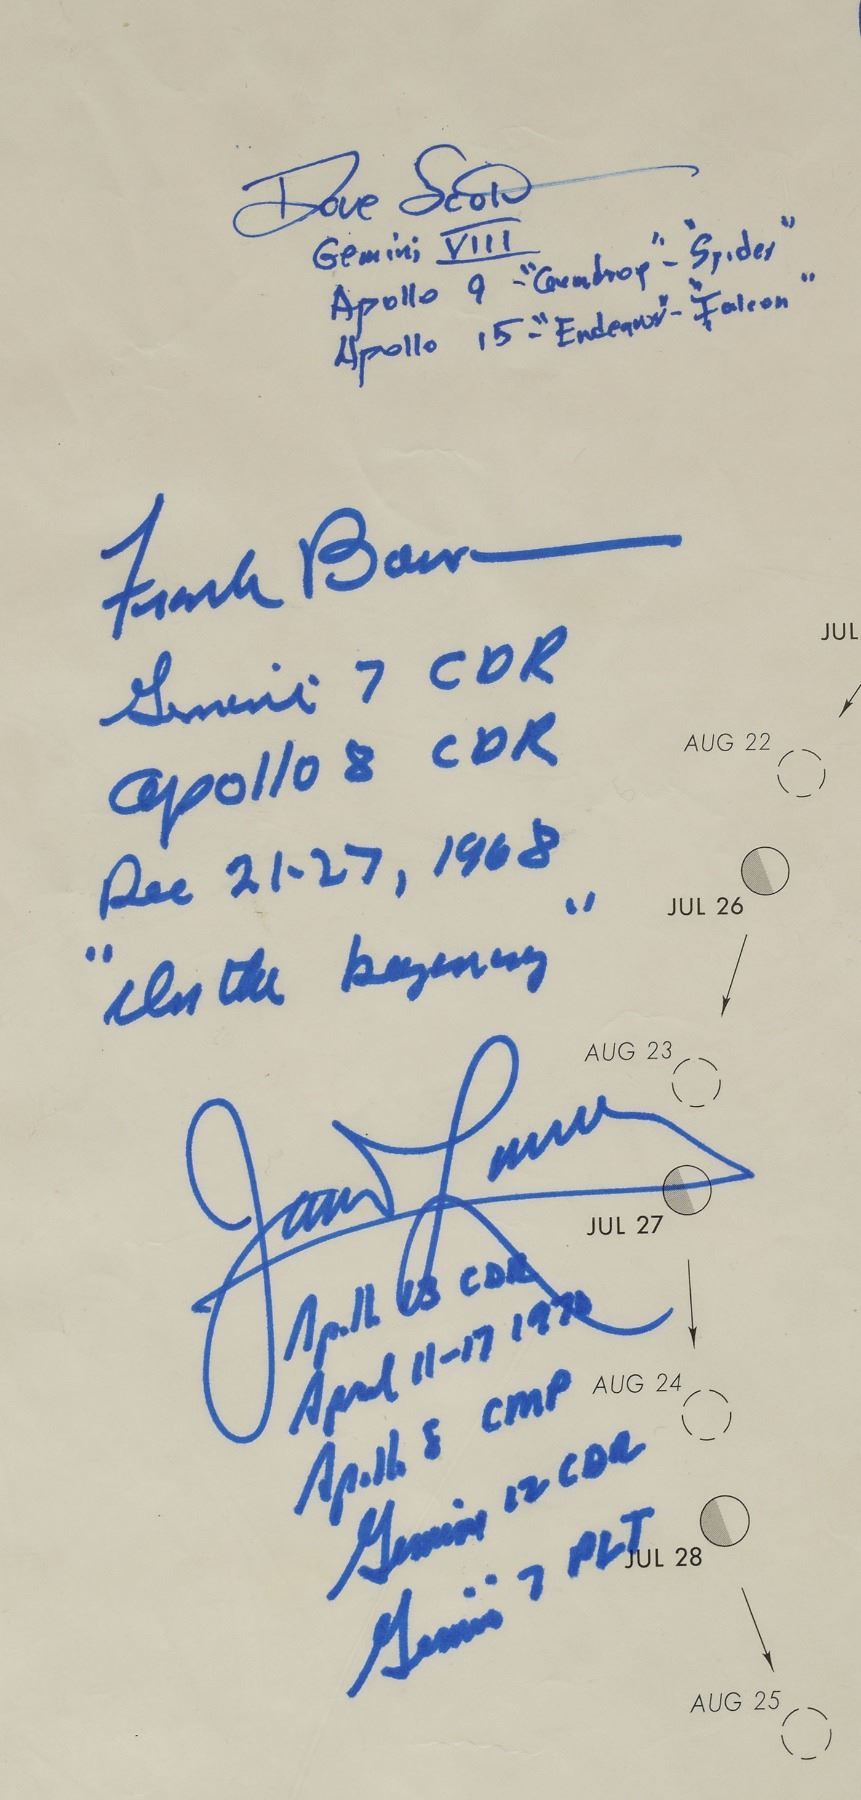 Dave Scott
Gemini VIII
Apollo 9 - "Gumdrop" - "Spider"
Apollo 15 - "Endeavor" - "Falcon"
Frank Borman
Gemini 7 CDR
Apollo 8 CDR
Dec 21-27, 1968
"In the beginning"
JUL
AUG 22
JUL 26
AUG 23
James Lovell
JUL 27
Apollo 13 CDR
April 11-17 1970
AUG 24
Apollo 8 CMP
Gemini 12 CDR
Gemini 7 PLT
JUL 28
AUG 25